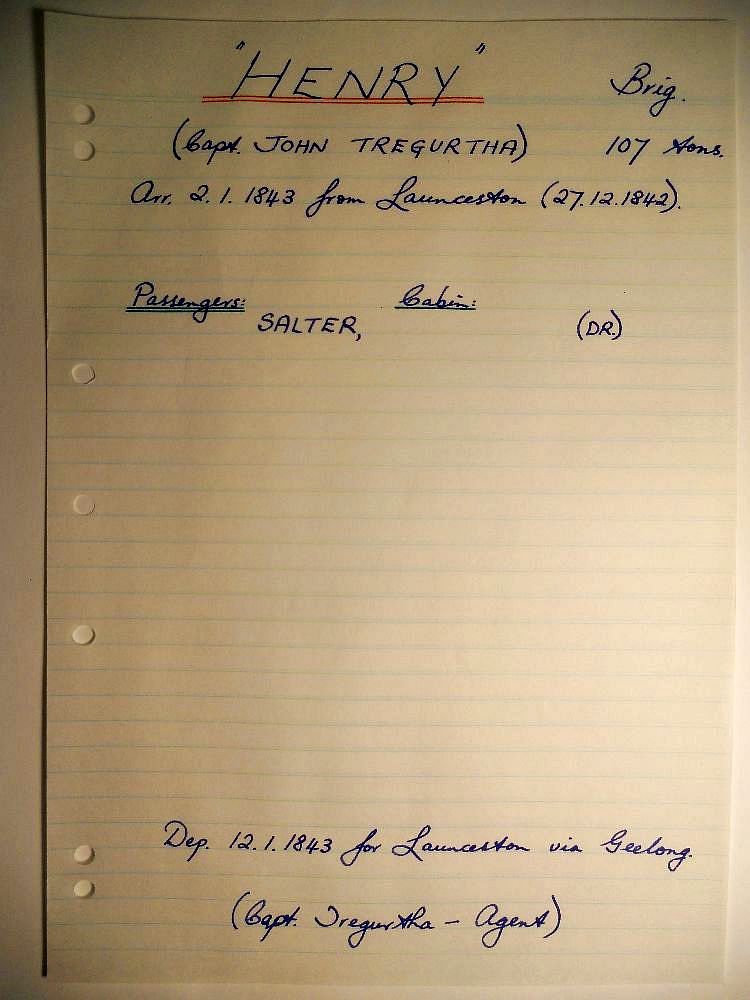 "HENRY" Brig.
(Capt. JOHN TREGURTHA) 107 tons.
Arr. 2.1.1843 from Launceston (27.12.1842).
Passengers: Cabin:
SALTER, (DR.)
Dep. 12.1.1843 for Launceston via Geelong.
(Capt. Tregurtha - Agent)